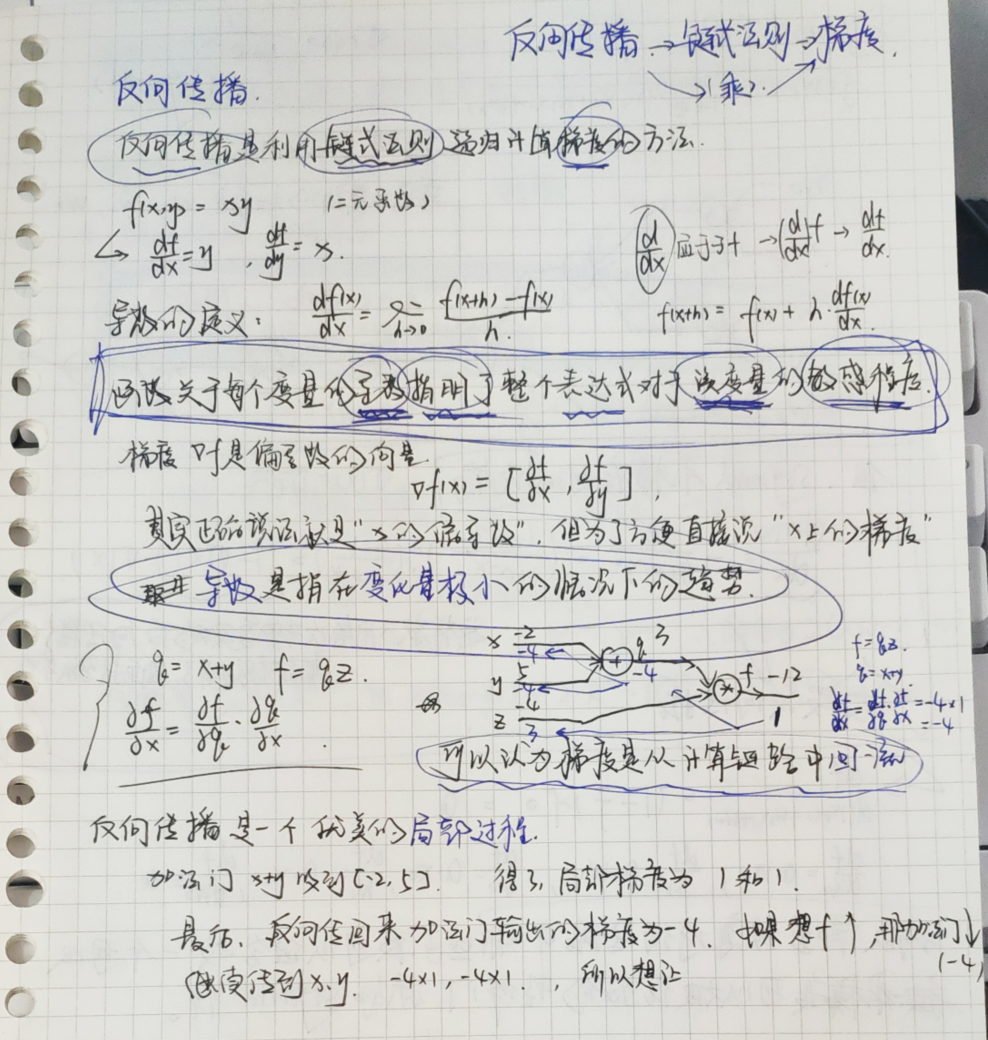 反向传播 → 链式法则 → 梯度.
(乘)
反向传播.
反向传播是利用链式法则递归计算梯度的方法.
f(x,y) = xy (二元函数)
↳ df/dx = y , df/dy = x.
d/dx 应于 f → (d/dx)f → df/dx.
导数的定义: df(x)/dx = lim h→0 (f(x+h) - f(x))/h.
f(x+h) = f(x) + h·df(x)/dx.
函数关于每个变量的导数指明了整个表达式对于该变量的敏感程度.
梯度 ∇f是偏导数的向量.
∇f(x) = [∂f/∂x , ∂f/∂y] ,
其实正确说法就是"x的偏导数", 但为了方便直接说"x上的梯度"
导数是指在变化量极小的情况下的趋势.
q = x+y f = qz.
∂f/∂x = ∂f/∂q · ∂q/∂x .
x -2 -4
y 5 -4
z -4 3
+ q 3 -4
* f -12 1
f = qz.
q = x+y.
∂f/∂x = ∂f/∂q · ∂q/∂x = -4×1
= -4
可以认为梯度是从计算链路中回流
反向传播是一个优美的局部过程.
加法门 x+y 收到[-2, 5]. 得3, 局部梯度为 1 和 1.
最后, 反向传回来加法门输出的梯度为-4. 如果想 f ↑, 那加法门↓
(-4)
继续传到x,y. -4×1, -4×1. , 所以想让